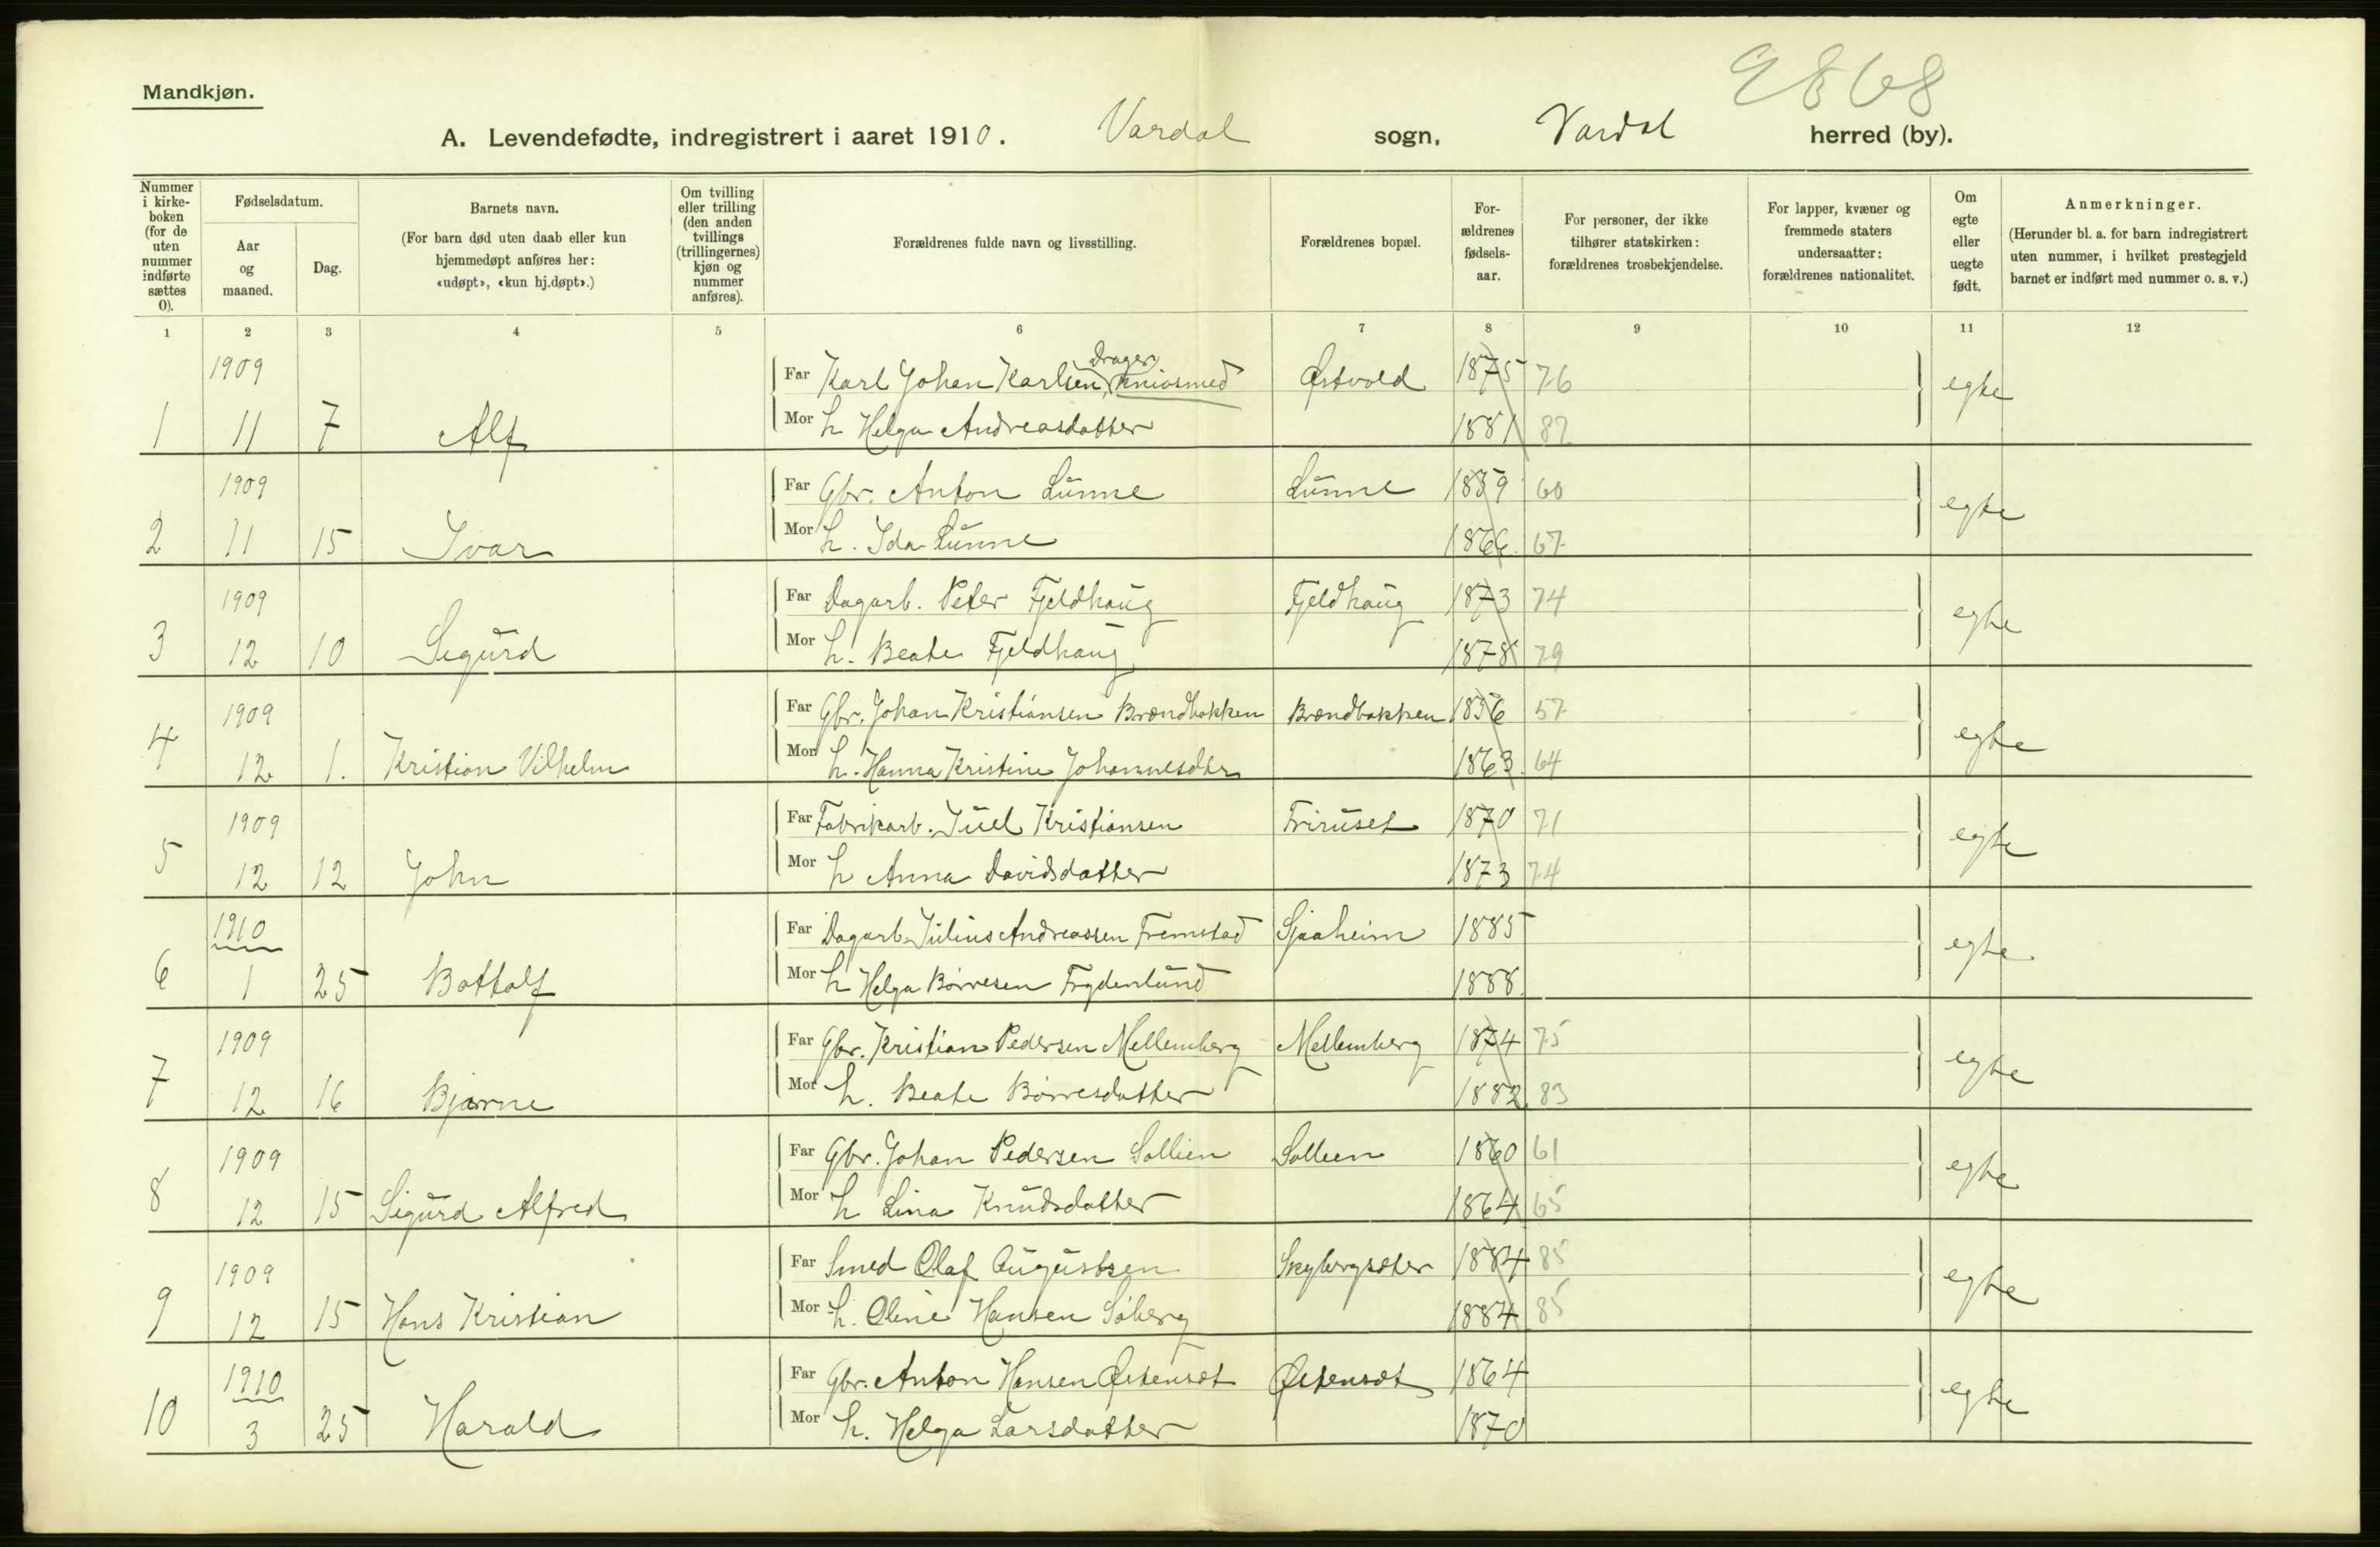 9868
Mandkjøn.
A. Levendefødte, indregistrert i aaret 1910. Vardal sogn, Vardal herred (by).
Nummer i kirke-boken (for de uten nummer indførte sættes 0).
Fødselsdatum.
Aar og maaned.
Dag.
Barnets navn.
(For barn død uten daab eller kun hjemmedøpt anføres her: «udøpt», «kun hj.døpt».)
Om tvilling eller trilling (den anden tvillings (trillingernes) kjøn og nummer anføres).
Forældrenes fulde navn og livsstilling.
Forældrenes bopæl.
For-ældrenes fødsels-aar.
For personer, der ikke tilhører statskirken: forældrenes trosbekjendelse.
For lapper, kvæner og fremmede staters undersaatter: forældrenes nationalitet.
Om egte eller uegte født.
Anmerkninger.
(Herunder bl. a. for barn indregistrert uten nummer, i hvilket prestegjeld barnet er indført med nummer o. s. v.)
1 2 3 4 5 6 7 8 9 10 11 12
1909 Far Karl Johan Karlsen, Knivsmed Østvold 1875 76 egte
1 11 7 Alf Mor h Helga Andreasdatter 1881 82
1909 Far Gbr. Anton Lunne Lunne 1859 60 egte
2 11 15 Ivar Mor h. Ida Lunne 1866 67
1909 Far Dagarb. Peter Fjeldhaug Fjeldhaug 1873 74 egte
3 12 10 Sigurd Mor h. Beate Fjeldhaug 1878 79
1909 Far Gbr. Johan Kristiansen Brændbakken Brændbakken 1856 57 egte
4 12 1. Kristian Vilhelm Mor h. Hanna Kristine Johannesdtr 1863 64
1909 Far Fabrikarb. Juel Kristiansen Friruset 1870 71 egte
5 12 12 John Mor h Anna Davidsdatter 1873 74
1910 Far Dagarb. Julius Andreassen Fremstad Sjaaheim 1885 egte
6 1 25 Bottolf Mor h Helga Børresen Frydenlund 1888
1909 Far Gbr. Kristian Pedersen Mellemberg Mellemberg 1874 75 egte
7 12 16 Bjarne Mor h. Beate Børresdatter 1882 83
1909 Far Gbr. Johan Pedersen Sollien Sollien 1860 61 egte
8 12 15 Sigurd Alfred Mor h Lina Knudsdatter 1864 65
1909 Far Smed Olaf Augustsen 1884 85 egte
9 12 15 Hans Kristian Mor h. Oline Hansen Søberg 1884 85
1910 Far Gbr. Anton Hansen Østensæt Østensæt 1864 egte
10 3 25 Harald Mor h. Helga Larsdatter 1870